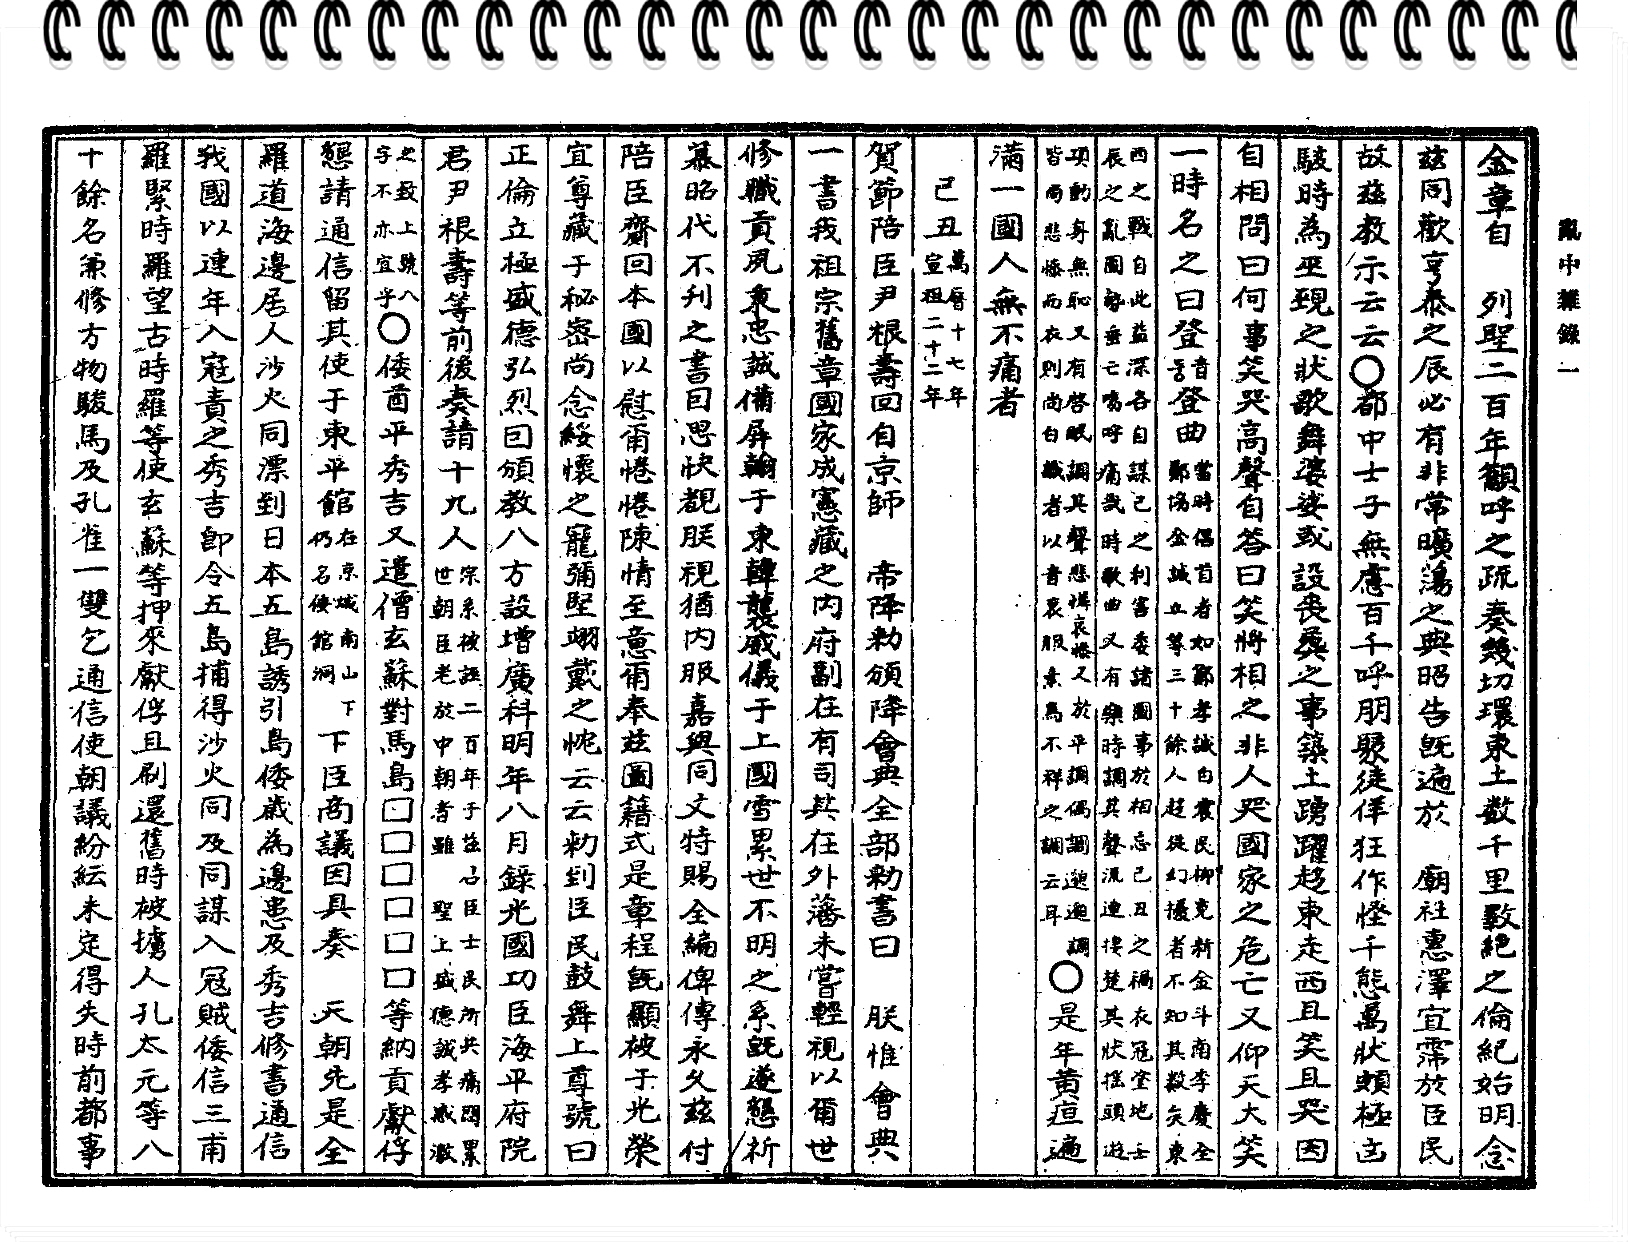 亂中雜錄一
金章自 列聖二百年籲呼之疏奏幾切環東土数千里斁絕之倫紀始明念
玆同歡亨泰之辰必有非常曠蕩之典昭告旣遍於 廟社惠澤宜霈於臣民
故玆教示云云○都中士子無慮百千呼朋聚徒佯狂作怪千態萬狀顚極凶
駭時為巫覡之狀歌舞婆娑或設喪葬之事築土踴躍趍東走西且笑且哭因
自相問曰何事笑哭高聲自答曰笑將相之非人哭國家之危亡又仰天大笑
一時名之曰登登曲
音
등
當時倡首者如鄭孝誠白震民柳克新金斗南李慶全
鄭協金誠立等三十餘人趍從幻擾者不知其数矣東
西之戰自此益深各自謀己之利害委諸國事於相忘己丑之禍衣冠塗地壬
辰之亂國勢垂亡嗚呼痛哉時歌曲又有樂時調其聲流連悽楚其狀搖頭遊
項動身無恥又有啓眠調其聲悲惰哀慘又於平調偶調邀邀調
皆尙悲慘而衣則尙白識者以音哀服素爲不祥之調云耳
○是年黄疸遍
滿一國人無不痛者
己丑
萬曆十七年
宣祖二十二年
賀節陪臣尹根壽回自京師 帝降勅頒降會典全部勅書曰 朕惟會典
一書我祖宗舊章國家成憲藏之内府副在有司其在外藩未嘗輕視以爾世
修職貢夙秉忠誠備屏翰于東韓襲威儀于上國雪累世不明之系旣遂懇祈
慕昭代不刋之書囙思快覩朕視猶内服嘉與同文特賜全編俾傳永久玆付
陪臣齎回本國以慰爾惓惓陳情至意爾奉玆圖籍式是章程旣顯被于光榮
宜尊藏于秘密尚念綏懷之寵彌堅翊戴之忱云云勅到臣民鼓舞上尊號曰
正倫立極盛德弘烈囙頒教八方設增廣科明年八月錄光國功臣海平府院
君尹根壽等前後奏請十九人
宗系被誣二百年于玆召臣士民所共痛悶累
世朝臣老於中朝者雖 聖上盛德誠孝感激
之致上號八
字不亦宜乎
○倭酋平秀吉又遣僧玄蘇對馬島□□□□□□等納貢獻俘
懇請通信留其使于東平館
在京城南山下
仍名倭館洞
下臣啇議因具奏 天朝先是全
羅道海邊居人沙火同漂到日本五島誘引島倭歲為邊患及秀吉修書通信
我國以連年入冦責之秀吉卽令五島捕得沙火同及同謀入冦賊倭信三甫
羅緊時羅望古時羅等使玄蘇等押來獻俘且刷還舊時被擄人孔太元等八
十餘名兼修方物駿馬及孔雀一雙乞通信使朝議紛紜未定得失時前都事